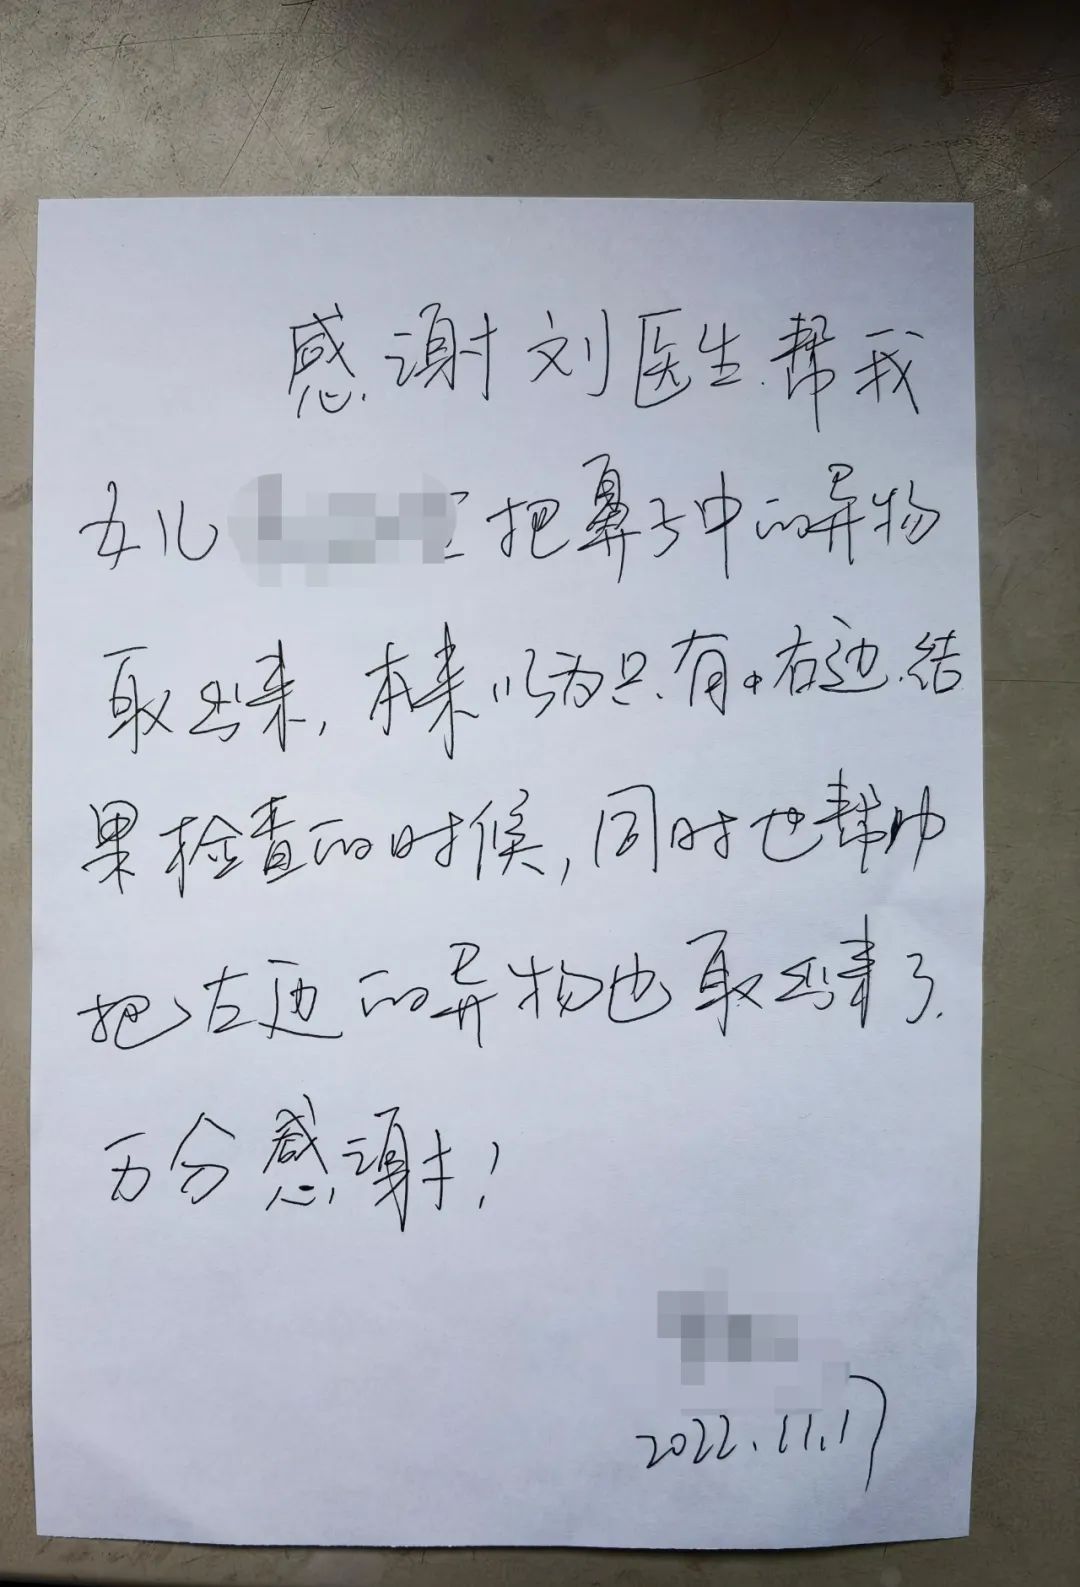 感谢刘医生帮我
女儿 把鼻子中的异物
取出来，本来以为只有右边.结
果检查的时候，同时也帮助
把左边的异物也取出来了.
万分感谢！
2022.11.17